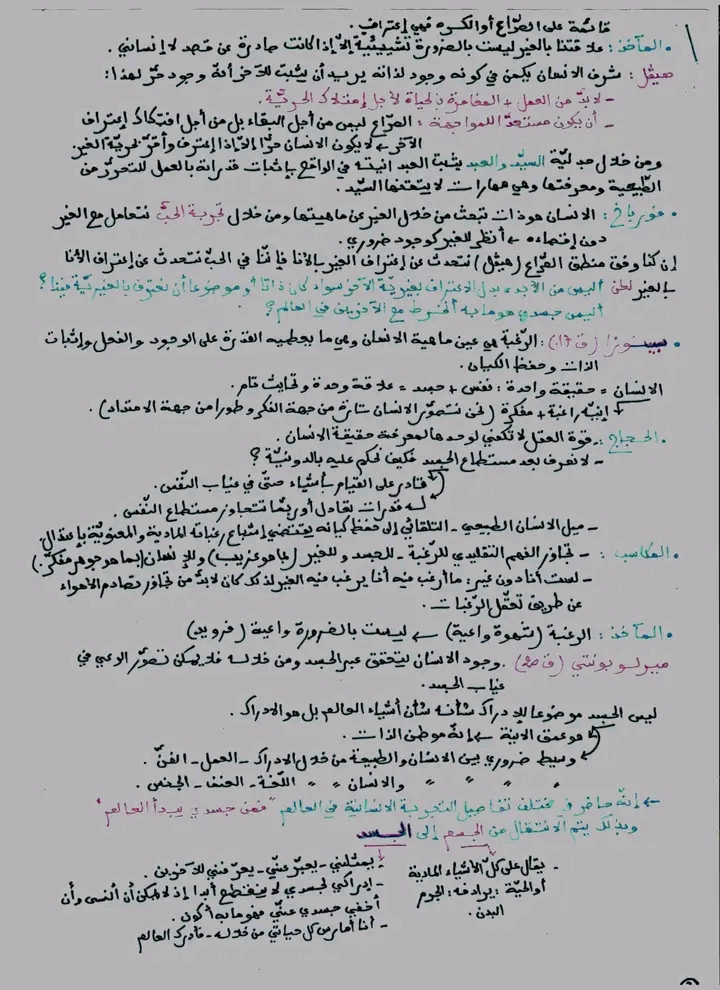 قائمة على الصراع أو الكره فهي إعتراف.
• المآخذ: علاقتنا بالغير ليست بالضرورة تشييئية إلا إذا كانت صادرة عن قصد لا إنساني.
هيڨل: شرف الانسان يكمن في كونه وجود لذاته يريد أن يثبت للآخر أنه وجود حر لهذا:
- لابد من العمل + المغامرة بالحياة لأجل إمتلاك الحرية.
- أن يكون مستعدا للمواجهة: الصراع ليس من أجل البقاء بل من أجل افتكاك إعتراف
الآخر ← لا يكون الانسان حرا إلا إذا إعترف وأقر بحرية الغير
ومن خلال جدلية السيد والعبد يثبت العبد انيته في الواقع بإثبات قدراته بالعمل للتحرر من
الطبيعة ومعرفتها وهي مهارات لا يتقنها السيد.
• فورباخ: الانسان هو ذات تبحث من خلال الغير عن ماهيتها ومن خلال تجربة الحب نتعامل مع الغير
دون إقصاءه ← أنظر للغير كوجود ضروري.
إن كنا وفق منطق الصراع (هيڨل) نتحدث عن إعتراف الغير بالأنا فإننا في الحب نتحدث عن إعتراف الأنا
بالغير لكن أليس من الأجدر بدل الاعتراف بغيرية الآخر سواء كان ذاتا أو موضوعا أن نعترف بالغيرية فينا؟
أليس جسدي هو ما به أنخرط مع الآخرين في العالم؟
• سبينوزا (ق 17): الرغبة هي عين ماهية الانسان وهي ما يعطيه القدرة على الوجود والفعل وإثبات
الذات وحفظ الكيان.
الانسان = حقيقة واحدة: نفس + جسد = علاقة وحدة وتحايث تام.
إنية راغبة + مفكرة (نحن نتصور الانسان تارة من جهة الفكر وطورا من جهة الامتداد).
• الحجاج: - قوة العقل لا تكفي لوحدها لمعرفة حقيقة الانسان.
- لا نعرف بعد مستطاع الجسد فكيف نحكم عليه بالدونية؟
قادر على القيام بأشياء حتى في غياب النفس.
له قدرات تعادل أو ربما تتجاوز مستطاع النفس.
- ميل الانسان الطبيعي - التلقائي إلى حفظ كيانه يقتضي إشباع رغباته المادية والمعنوية بإعتدال
• المكاسب: - تجاوز الفهم التقليدي للرغبة - للجسد وللغير (بما هو غريب) وللإنسان (بما هو جوهر مفكر.)
- لست أنا دون غير: ما أرغب فيه أنا يرغب فيه الغير لذلك كان لابد من تجاوز تصادم الأهواء
عن طريق تعقل الرغبات.
• المآخذ: الرغبة (شهوة واعية) ← ليست بالضرورة واعية (فرويد)
ميرلوبونتي (ق 20). وجود الانسان يتحقق عبر الجسد ومن خلاله فلا يمكن تصور الوعي في
غياب الجسد.
ليس الجسد موضوعا للإدراك شأنه شأن أشياء العالم بل هو الادراك.
هو عمق الانية ← إنه موطن الذات.
وسيط ضروري بين الانسان والطبيعة من خلال الادراك - العمل - الفن.
" " " والانسان " " اللغة - العنف - الجنس.
← إنه حاضر في مختلف تفاصيل التجربة الانسانية في العالم "فمن جسدي يبدأ العالم"
وبذلك يتم الانتقال من الجسم إلى الجسد
- يقال على كل الأشياء المادية
أو الحية: يرادفه: الجرم
البدن.
- يمثلني - يعبر عني - يعرفني للآخرين.
- إدراكي لجسدي لا ينقطع أبدا إذ لا يمكن أن أنسى وأن
أخفي جسدي عني فهو ما به أكون.
- أنا أمارس كل حياتي من خلاله - فأدرك العالم